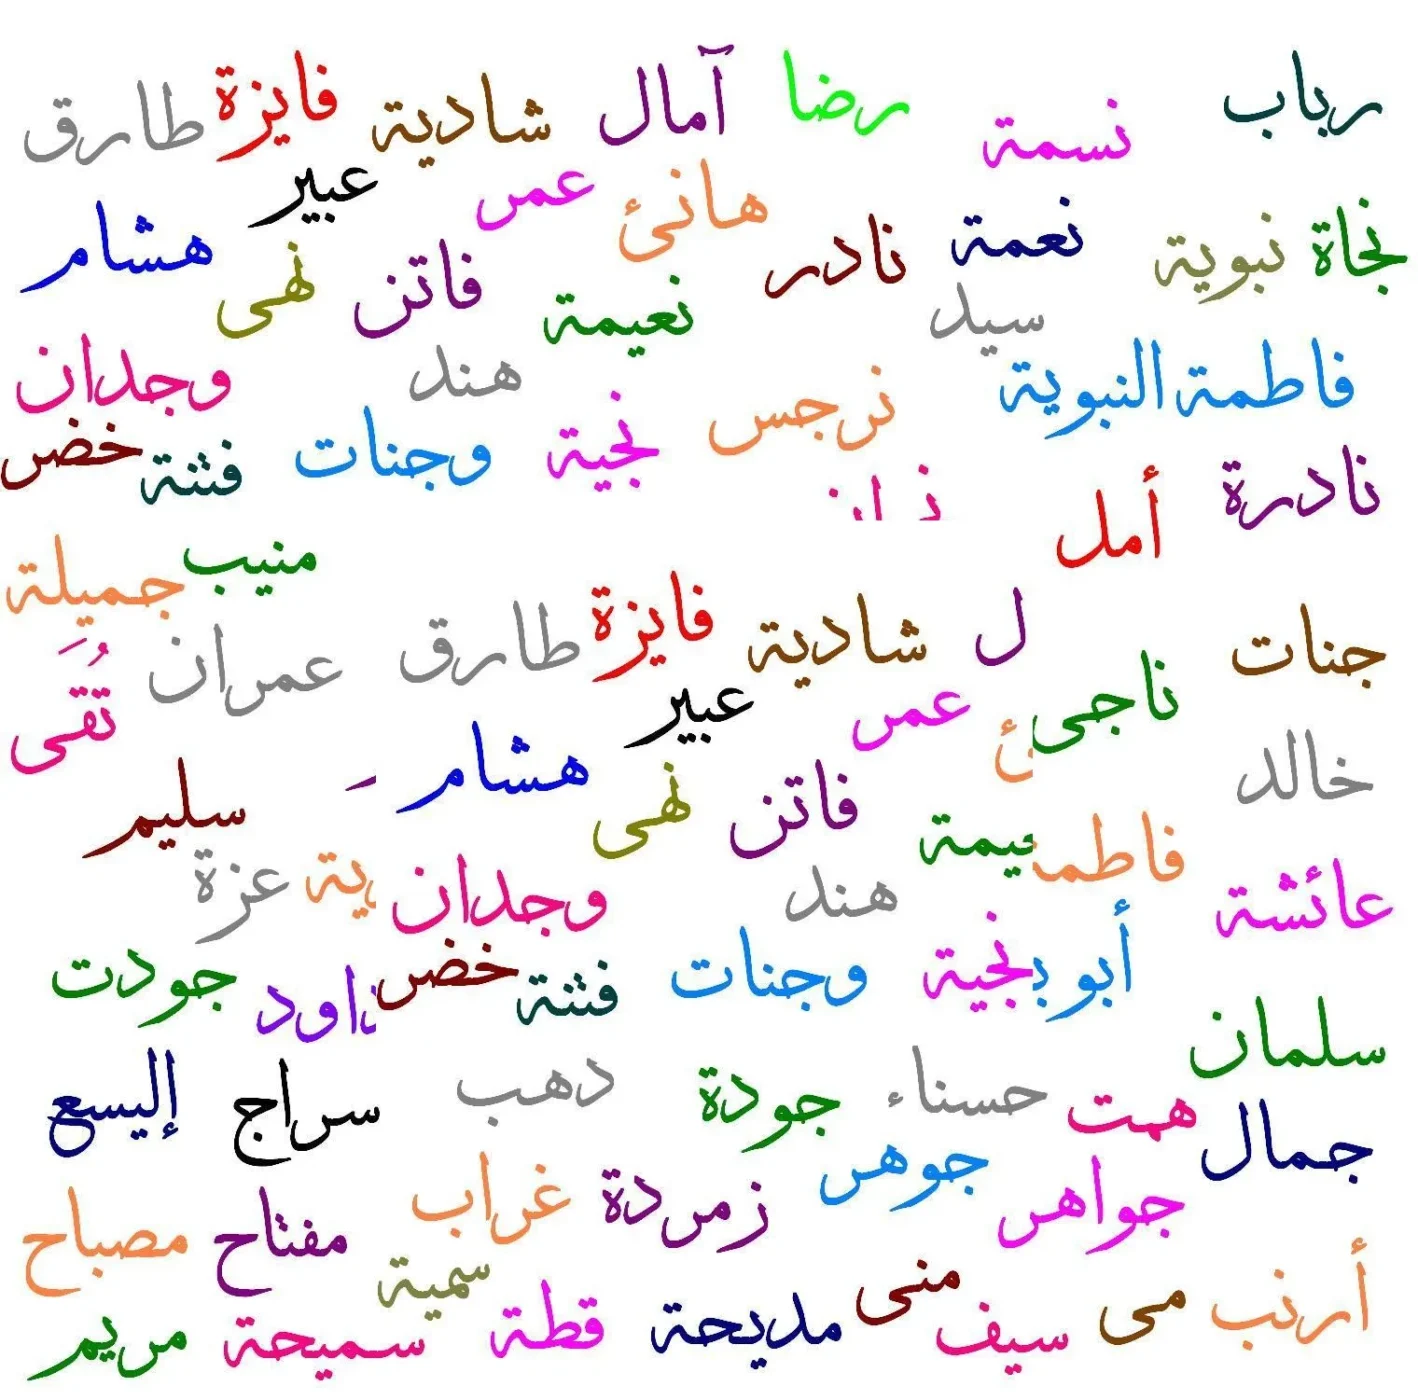 رباب
نسمة
رضا
آمال
شادية
فايزة
طارق
عبير
عمر
هانئ
نادر
نعمة
نبوية
نجاة
هشام
نهى
فاتن
نعيمة
سيد
فاطمة النبوية
وجدان
هند
نرجس
نجية
وجنات
فتنة
خضر
نادرة
أمل
منيب
جميلة
جنات
شادية
فايزة
طارق
عمران
تُقَى
ناجى
عمر
عبير
هشام
خالد
سليم
نهى
فاتن
عزة
وجدان
هند
عائشة
جودت
خضر
فتنة
وجنات
نجية
سلمان
إليسع
سراج
دهب
جودة
حسناء
همت
جمال
جوهر
جواهر
زمردة
غراب
مفتاح
مصباح
سمية
منى
مى
أرنب
سيف
مديحة
قطة
سميحة
مريم